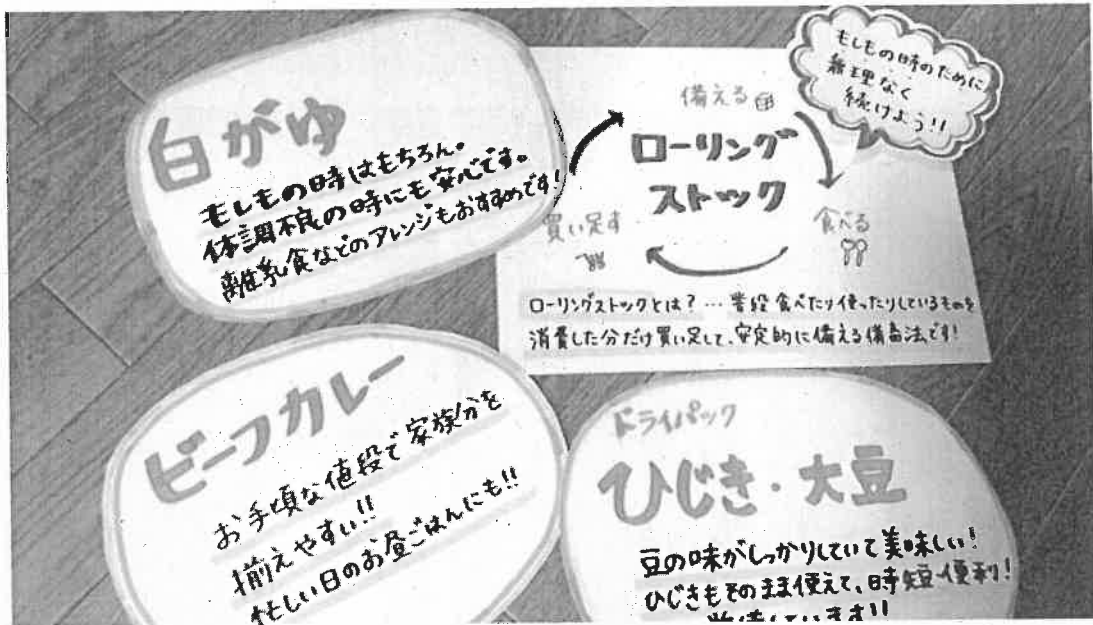 白がゆ
もしもの時はもちろん。
体調不良の時にも安心です。
離乳食などのアレンジもおすすめです!
もしもの時のために
無理なく
続けよう!!
備える
ローリング
ストック
買い足す
食べる
ローリングストックとは?…普段食べたり使ったりしているものを
消費した分だけ買い足して、安定的に備える備蓄法です!
ビーフカレー
お手頃な値段で家族分を
揃えやすい!!
忙しい日のお昼ごはんにも!!
ドライパック
ひじき・大豆
豆の味がしっかりしていて美味しい!
ひじきもそのまま使えて、時短・便利!
しています!!